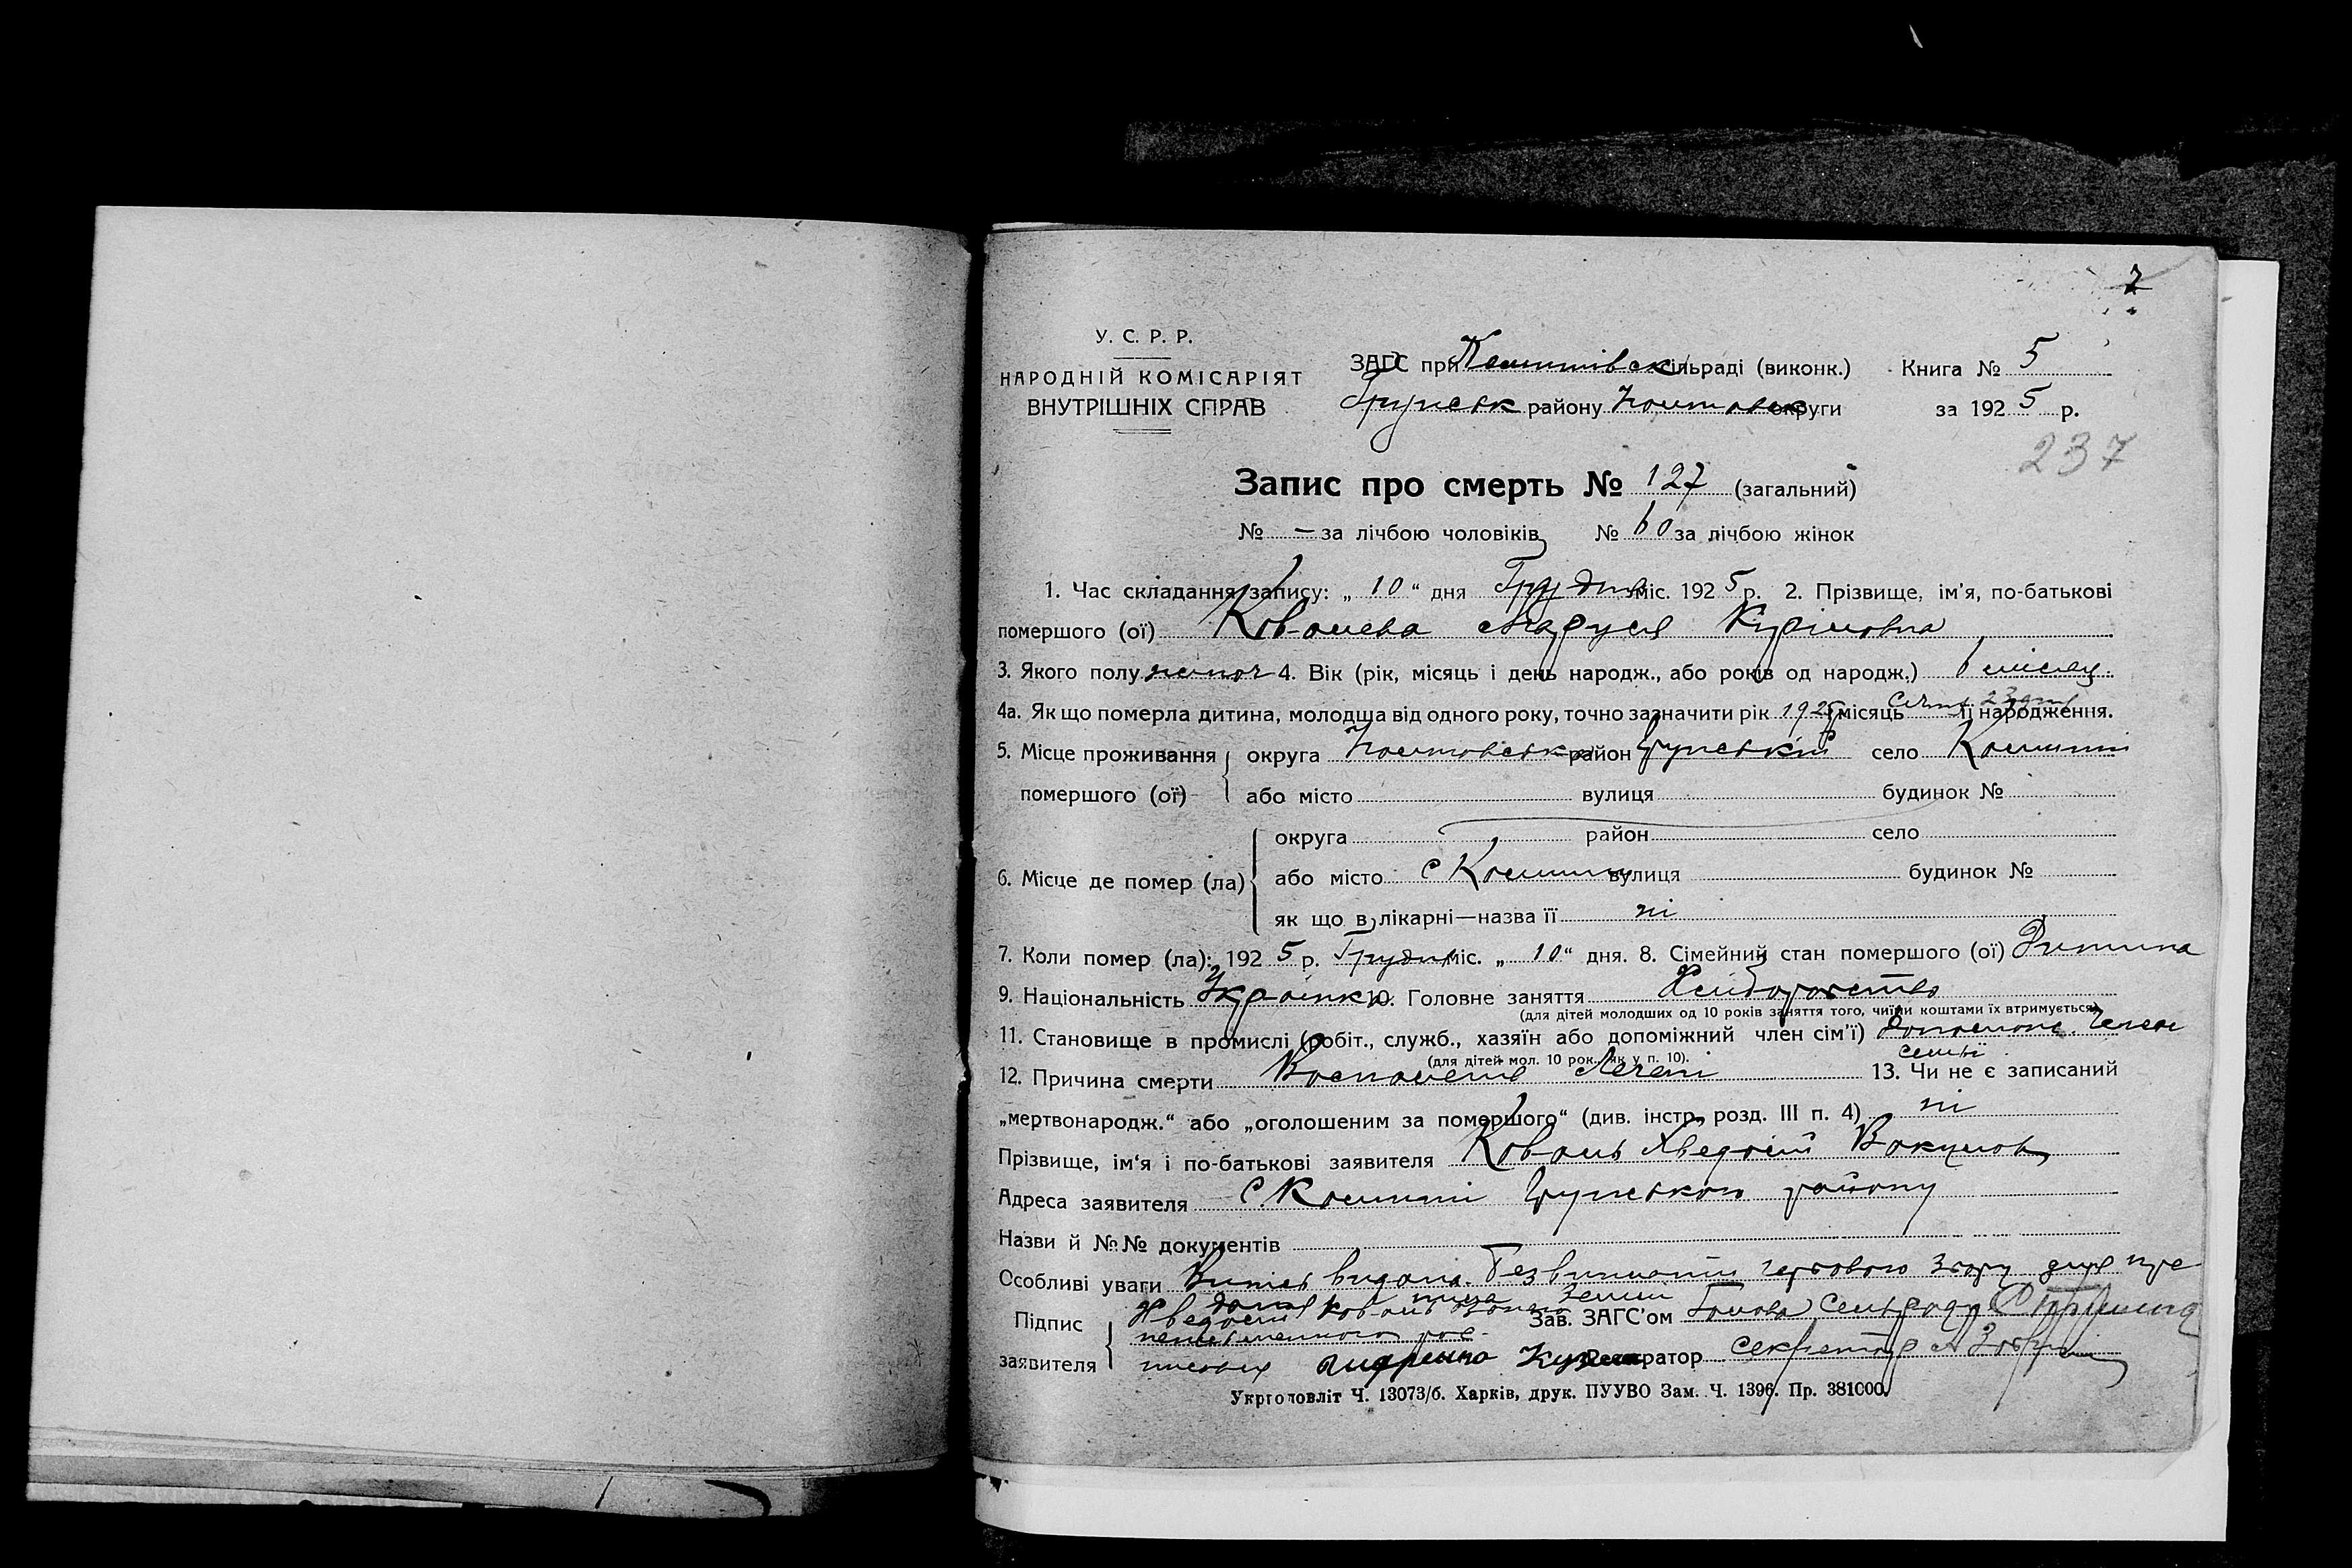 7
У. С. Р. Р.
НАРОДНІЙ КОМІСАРІЯТ
ВНУТРІШНІХ СПРАВ
ЗАГС при сільраді (виконк.) Книга № 5
Грунськ району округи за 1925 р.
237
Запис про смерть № 127 (загальний)
№ — за лічбою чоловіків № 60 за лічбою жінок
1. Час складання запису: „ 10 “ дня Грудня міс. 1925 р. 2. Прізвище, ім'я, по-батькові
помершого (ої) Ковалева Маруся
3. Якого полу жіноч 4. Вік (рік, місяць і день народж., або років од народж.) місяц.
4а. Як що померла дитина, молодша від одного року, точно зазначити рік 1925 місяць Січня 23 дня її народження.
5. Місце проживання округа район Грунський село
помершого (ої) або місто вулиця будинок №
округа район село
6. Місце де помер (ла) або місто с вулиця будинок №
як що в лікарні—назва її ні
7. Коли помер (ла): 1925 р. Грудня міс. „ 10 “ дня. 8. Сімейний стан помершого (ої) Дитина
9. Національність Українка 10. Головне заняття Хліборобство
(для дітей молодших од 10 років заняття того, чиїми коштами їх втримується)
11. Становище в промислі (робіт., служб., хазяїн або допоміжний член сім'ї) допоможн. член
семьї
(для дітей мол. 10 рок. як у п. 10).
12. Причина смерти Воспаление Легені 13. Чи не є записаний
„мертвонародж.“ або „оголошеним за помершого“ (див. інстр. розд. III п. 4) ні
Прізвище, ім'я і по-батькові заявителя Коваль Хведосій Вакулов
Адреса заявителя с. Грунського району
Назви й №№ документів
Особливі уваги Витяг видана. Без гербового збору для
Підпис Хведосій Коваль Зав. ЗАГС'ом Голова сельради
заявителя Андрієнко Реєстратор секретар
Укрголовліт Ч. 13073/б. Харків, друк. ПУУВО Зам. Ч. 1396. Пр. 381000.